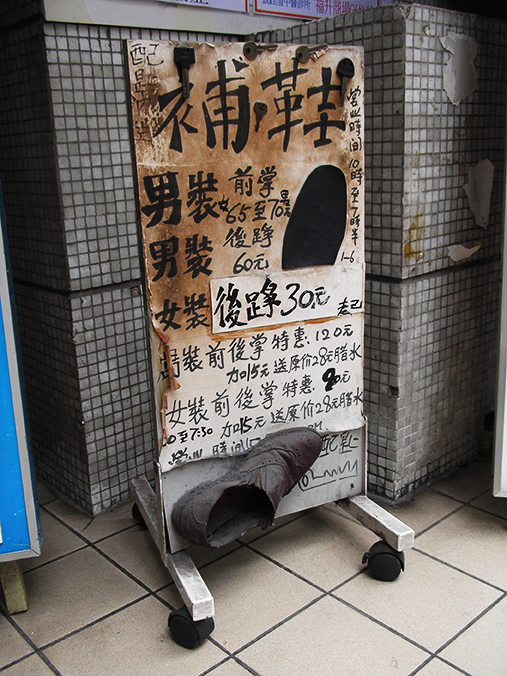 配匙
補鞋
營業時間10時至7時半
1-6
男裝 前掌
65至70元
男裝 後踭
60元
女裝 後踭30元 走己
男裝前後掌 特惠:120元
加15元 送原价28元腊水
女裝前後掌 特惠:90元
加15元 送原价28元腊水
10至7:30
營業時間
配匙